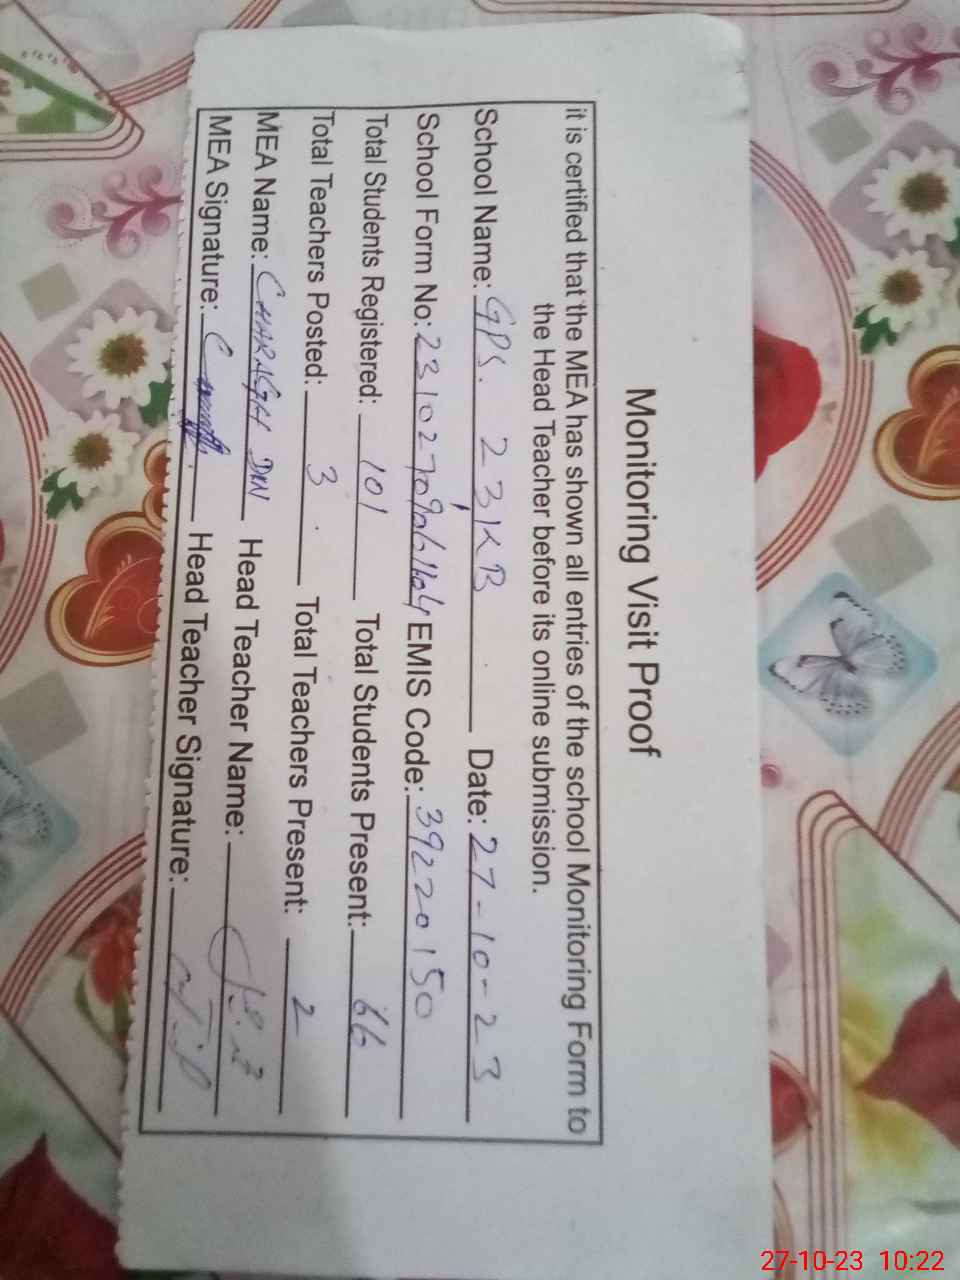 Monitoring Visit Proof
it is certified that the MEA has shown all entries of the school Monitoring Form to
the Head Teacher before its online submission.
School Name: GPS. 231KB Date: 27-10-23
School Form No: EMIS Code: 39220150
Total Students Registered: 101 Total Students Present: 66
Total Teachers Posted: 3 Total Teachers Present: 2
MEA Name: CHARAGH DIN Head Teacher Name:
MEA Signature: Head Teacher Signature:
27-10-23 10:22